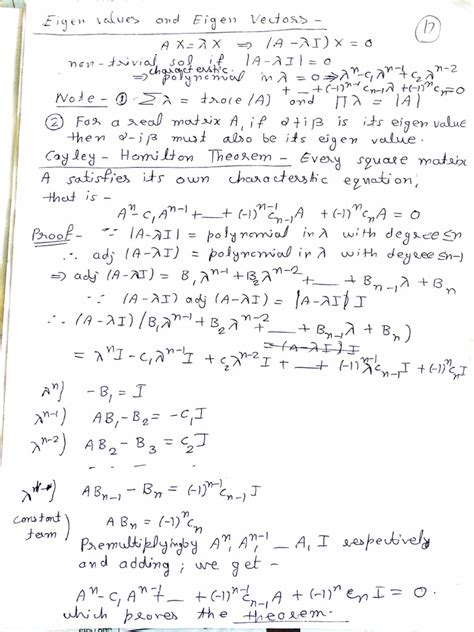 Eigen values and Eigen Vectors - 17
AX = λX ⇒ (A - λI)X = 0
non-trivial sol if |A - λI| = 0
⇒ characterstic polynomial in λ = 0 ⇒ λⁿ - c₁λⁿ⁻¹ + c₂λⁿ⁻²
+ __ + (-1)ⁿ⁻¹cₙ₋₁λ + (-1)ⁿcₙ = 0
Note - ① Σλ = trace(A) and Πλ = |A|
② For a real matrix A, if α+iβ is its eigen value
then α-iβ must also be its eigen value.
Cayley-Hamilton Theorem - Every square matrix
A satisfies its own characterstic equation,
that is -
Aⁿ - c₁Aⁿ⁻¹ + __ + (-1)ⁿ⁻¹cₙ₋₁A + (-1)ⁿcₙA = 0
Proof - ∵ |A - λI| = polynomial in λ with degree ≤ n
∴ adj (A - λI) = polynomial in λ with degree ≤ n-1
⇒ adj (A - λI) = B₁λⁿ⁻¹ + B₂λⁿ⁻² + __ + Bₙ₋₁λ + Bₙ
∵ (A - λI) adj (A - λI) = |A - λI| I
∴ (A - λI)(B₁λⁿ⁻¹ + B₂λⁿ⁻² + __ + Bₙ₋₁λ + Bₙ)
= λⁿI - c₁λⁿ⁻¹I + c₂λⁿ⁻²I + __ + (-1)ⁿ⁻¹λcₙ₋₁I + (-1)ⁿcₙI
λⁿ) -B₁ = I
λⁿ⁻¹) AB₁ - B₂ = -c₁I
λⁿ⁻²) AB₂ - B₃ = c₂I
- - -
λ) ABₙ₋₁ - Bₙ = (-1)ⁿ⁻¹cₙ₋₁I
constant term) ABₙ = (-1)ⁿcₙ
Premultiplying by Aⁿ, Aⁿ⁻¹, __ A, I respectively
and adding, we get -
Aⁿ - c₁Aⁿ + __ + (-1)ⁿ⁻¹cₙ₋₁A + (-1)ⁿcₙI = 0.
which proves the theorem.